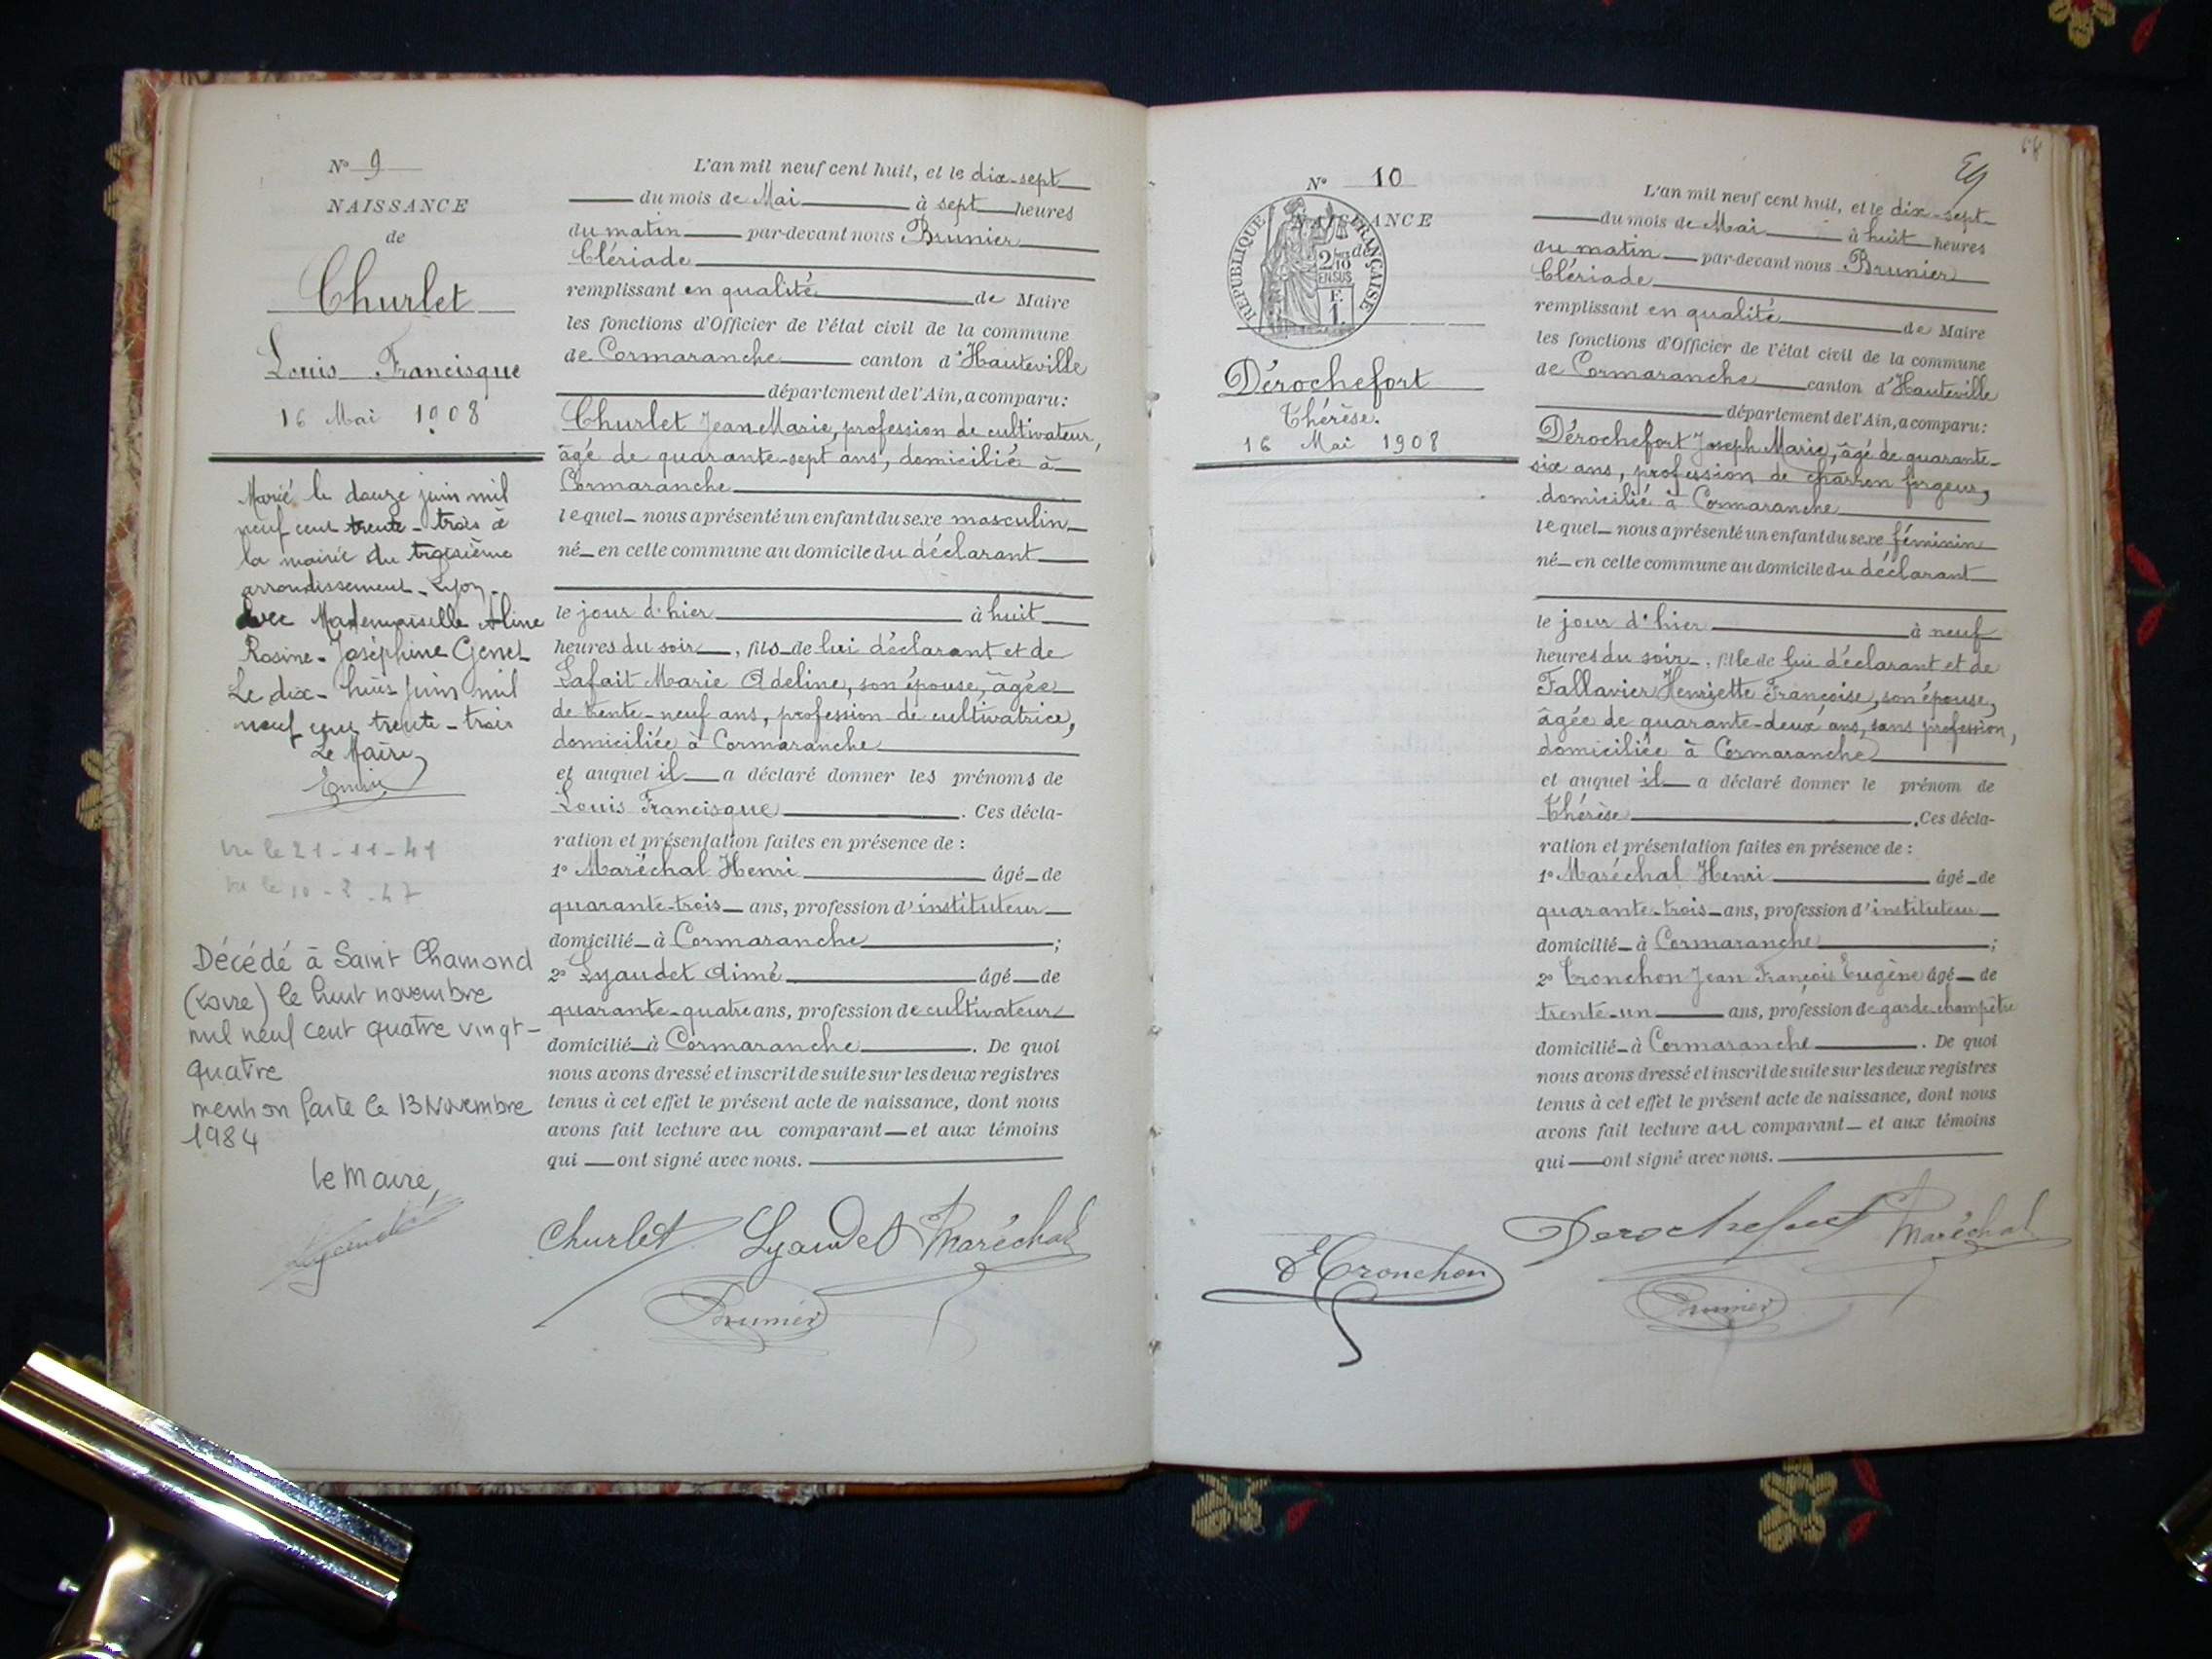 N° 9
NAISSANCE
de
Churlet
Louis Francisque
16 Mai 1908
Marié le douze juin mil
neuf cent trente-trois à
la mairie du troisième
arrondissement Lyon
avec Mademoiselle Aline
Rosine-Joséphine Genet
Le dix-huit juin mil
neuf cent trente-trois
Le Maire
Vu le 21-11-41
Vu le 10-2-47
Décédé à Saint Chamond
(Loire) le huit novembre
mil neuf cent quatre vingt-
quatre
mention faite le 13 Novembre
1984
le Maire,
L'an mil neuf cent huit, et le dix-sept
du mois de Mai à sept heures
du matin par-devant nous Brunier
Clériade
remplissant en qualité de Maire
les fonctions d'Officier de l'état civil de la commune
de Cormaranche canton d'Hauteville
département de l'Ain, a comparu:
Churlet Jean Marie, profession de cultivateur,
âgé de quarante-sept ans, domicilié à
Cormaranche
lequel nous a présenté un enfant du sexe masculin
né en cette commune au domicile du déclarant
le jour d'hier à huit
heures du soir, fils de lui déclarant et de
Lafait Marie Adeline, son épouse, âgée
de trente-neuf ans, profession de cultivatrice,
domiciliée à Cormaranche
et auquel il a déclaré donner les prénoms de
Louis Francisque. Ces décla-
ration et présentation faites en présence de :
1° Maréchal Henri âgé de
quarante-trois ans, profession d'instituteur
domicilié à Cormaranche ;
2° Lyaudet Aimé âgé de
quarante-quatre ans, profession de cultivateur
domicilié à Cormaranche. De quoi
nous avons dressé et inscrit de suite sur les deux registres
tenus à cet effet le présent acte de naissance, dont nous
avons fait lecture au comparant et aux témoins
qui ont signé avec nous.
Churlet Lyaudet Maréchal
Brunier
N° 10
NAISSANCE
de
RÉPUBLIQUE FRANÇAISE
2/10
EN SUS
F.
1.
Dérochefort
Thérèse.
16 Mai 1908
L'an mil neuf cent huit, et le dix-sept
du mois de Mai à huit heures
du matin par-devant nous Brunier
Clériade
remplissant en qualité de Maire
les fonctions d'Officier de l'état civil de la commune
de Cormaranche canton d'Hauteville
département de l'Ain, a comparu:
Dérochefort Joseph Marie, âgé de quarante-
six ans, profession de charron forgeur,
domicilié à Cormaranche
lequel nous a présenté un enfant du sexe féminin
né en cette commune au domicile du déclarant
le jour d'hier à neuf
heures du soir, fille de lui déclarant et de
Fallavier Henriette Françoise, son épouse,
âgée de quarante-deux ans, sans profession,
domiciliée à Cormaranche
et auquel il a déclaré donner le prénom de
Thérèse. Ces décla-
ration et présentation faites en présence de :
1° Maréchal Henri âgé de
quarante-trois ans, profession d'instituteur
domicilié à Cormaranche ;
2° Tronchon Jean François Eugène âgé de
trente-un ans, profession de garde-champêtre
domicilié à Cormaranche. De quoi
nous avons dressé et inscrit de suite sur les deux registres
tenus à cet effet le présent acte de naissance, dont nous
avons fait lecture au comparant et aux témoins
qui ont signé avec nous.
Derochefort Maréchal
E Tronchon
Brunier